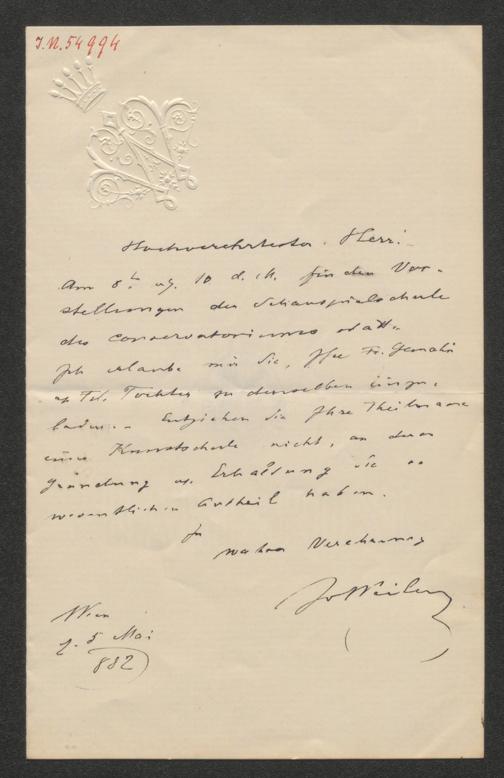 I.N. 54994
Hochverehrtester Herr!
Am 8t. u. 10 d. M. finden Vor-
stellungen der Schauspielschule
des Conservatoriums statt.
Ich erlaube mir Sie, Ihre Fr. Gemahlin
u. Frl. Tochter zu denselben einzu-
laden. - Entziehen Sie Ihre Theilnahme
einer Kunstschule nicht, an deren
Gründung u. Erhaltung Sie so
wesentlichen Antheil haben.
In
wahrer Verehrung
JvWeilen
Wien
d. 5 Mai
882